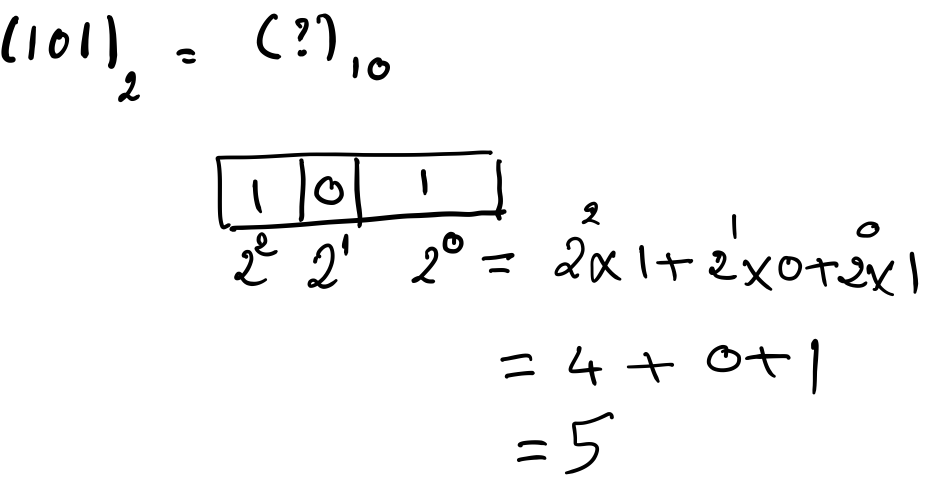 (101)₂ = (?)₁₀
1 0 1
2² 2¹ 2⁰ = 2²x1+2¹x0+2⁰x1
= 4 + 0+1
= 5